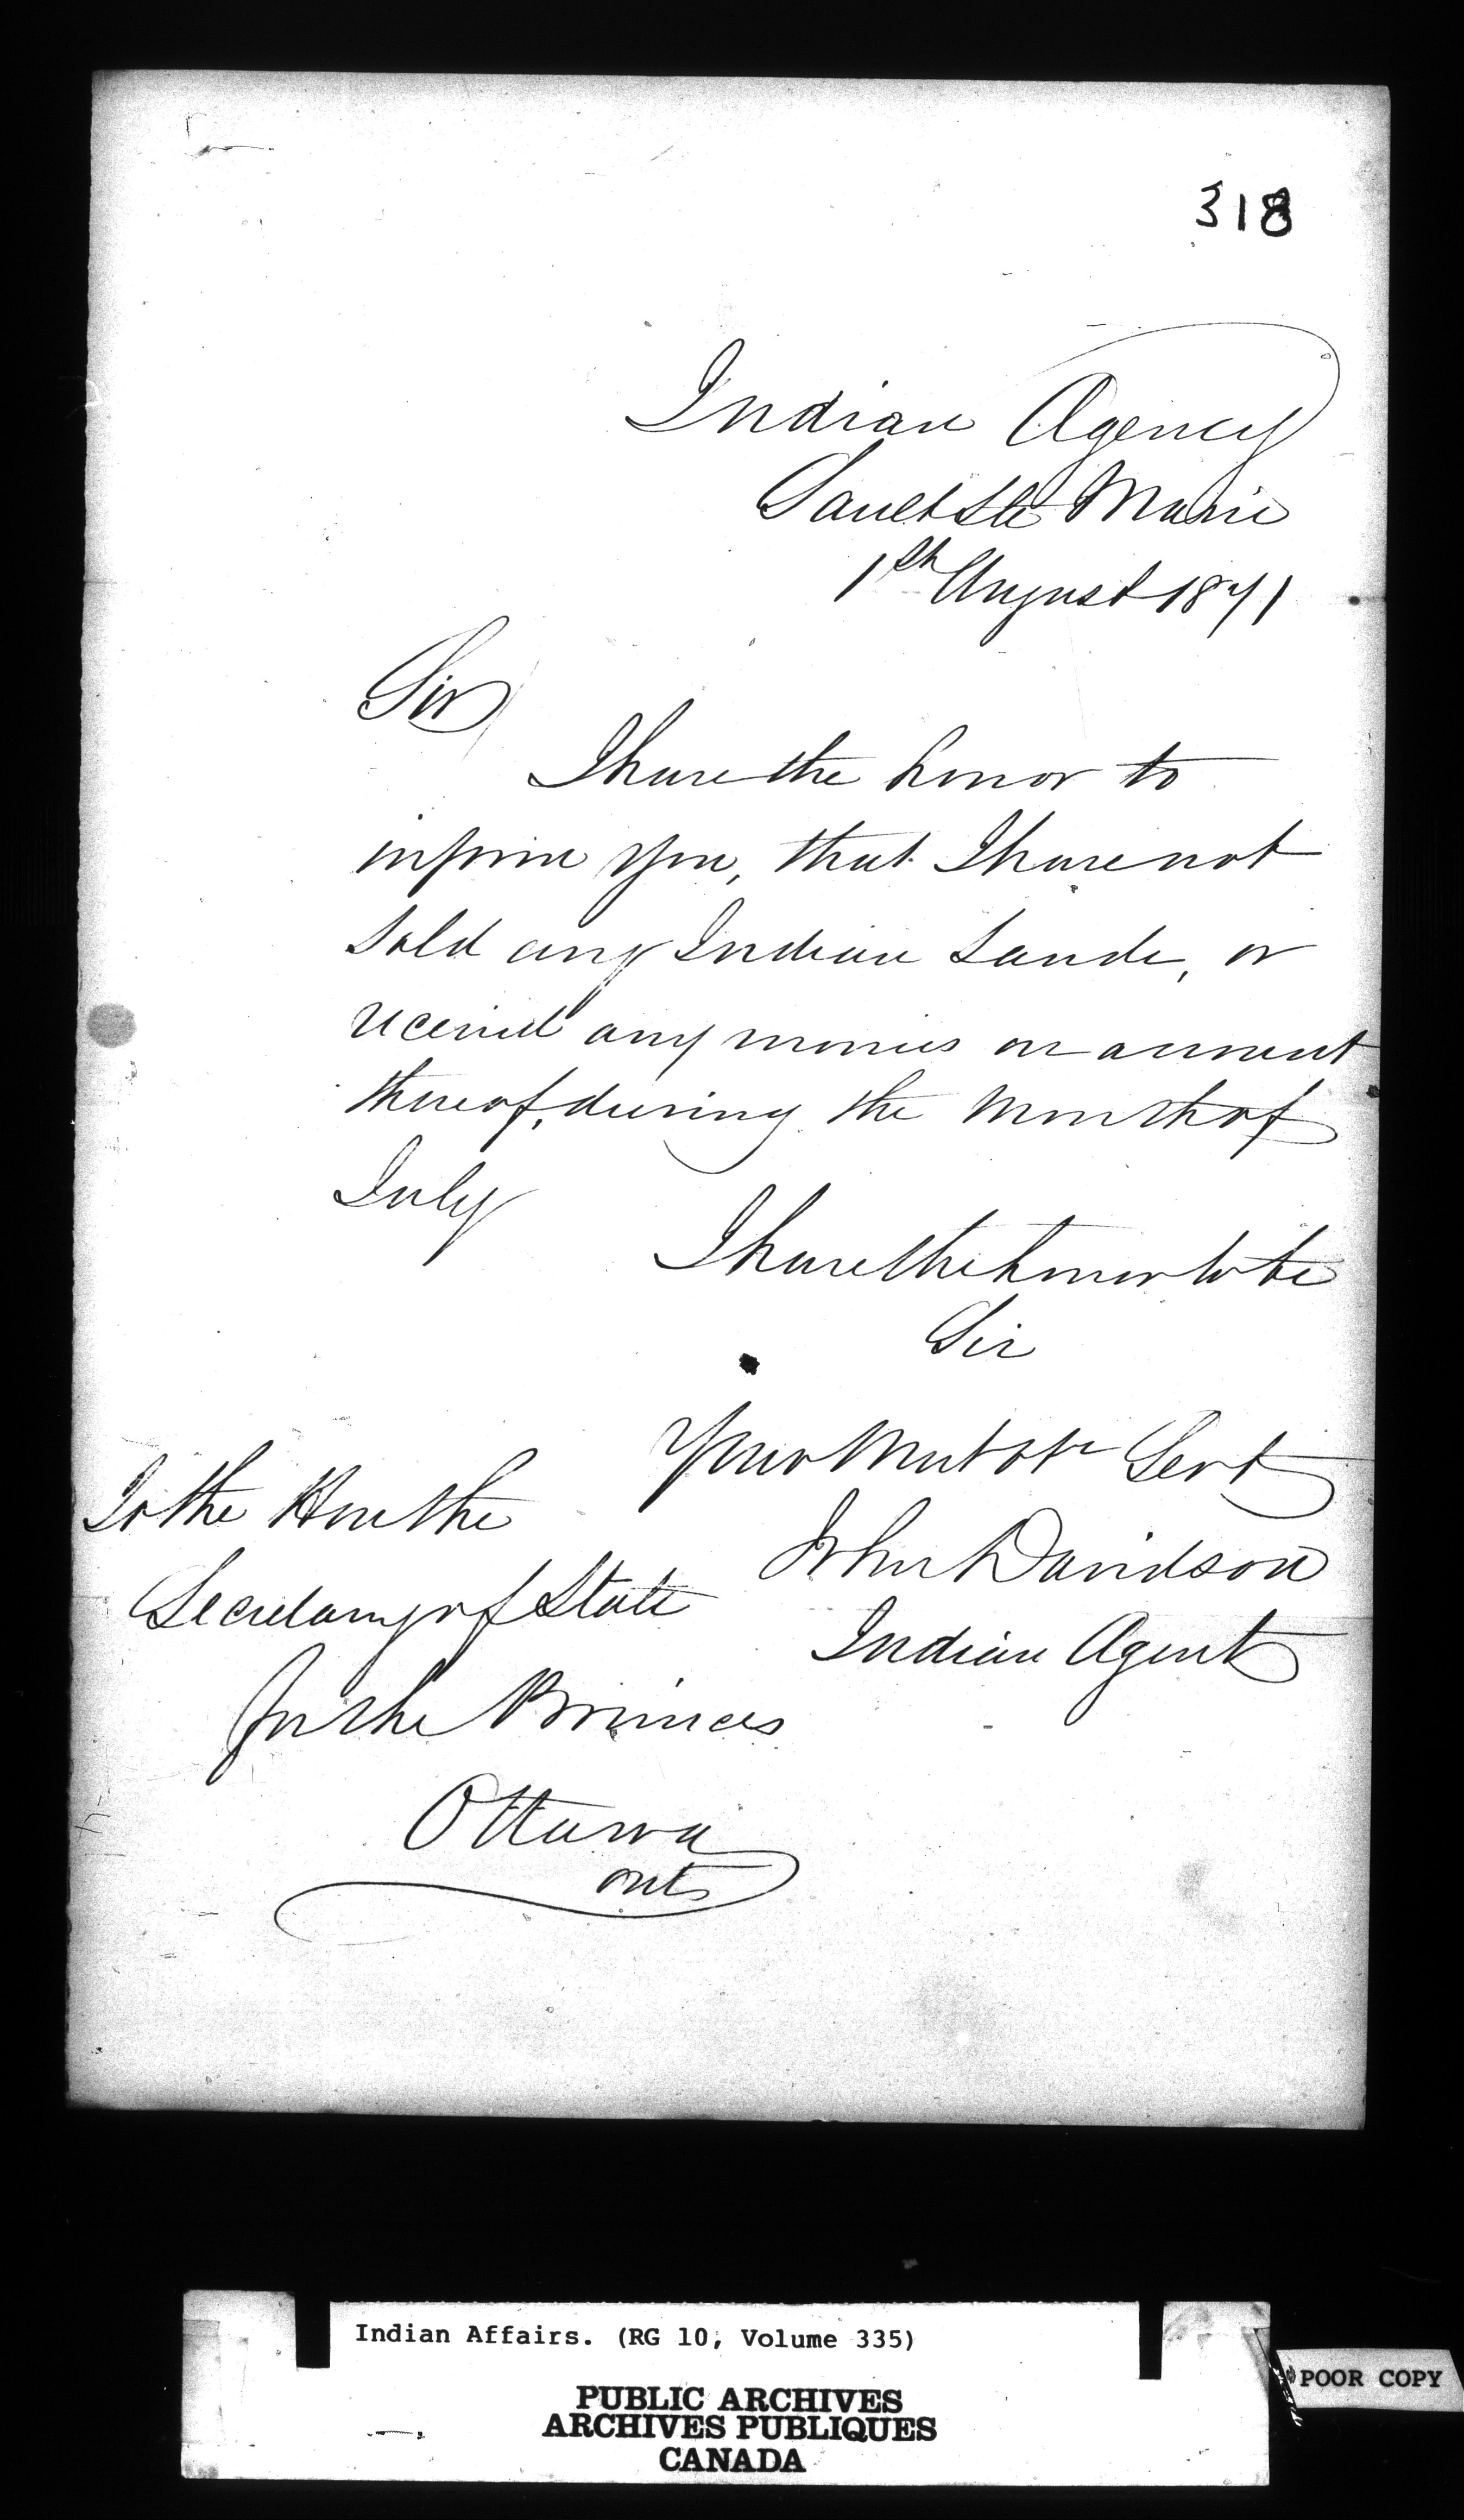 318
Indian Agency
Sault Ste Marie
1st August 1871
Sir
I have the honor to
inform you, that I have not
sold any Indian Lands, or
received any monies on account
thereof, during the Month of
July
I have the honor to be
Sir
Your Most Obt Servt
John Davidson
Indian Agent
To the Hon the
Secretary of State
for the Provinces
Ottawa
Ont
Indian Affairs. (RG 10, Volume 335)
PUBLIC ARCHIVES
ARCHIVES PUBLIQUES
CANADA
POOR COPY